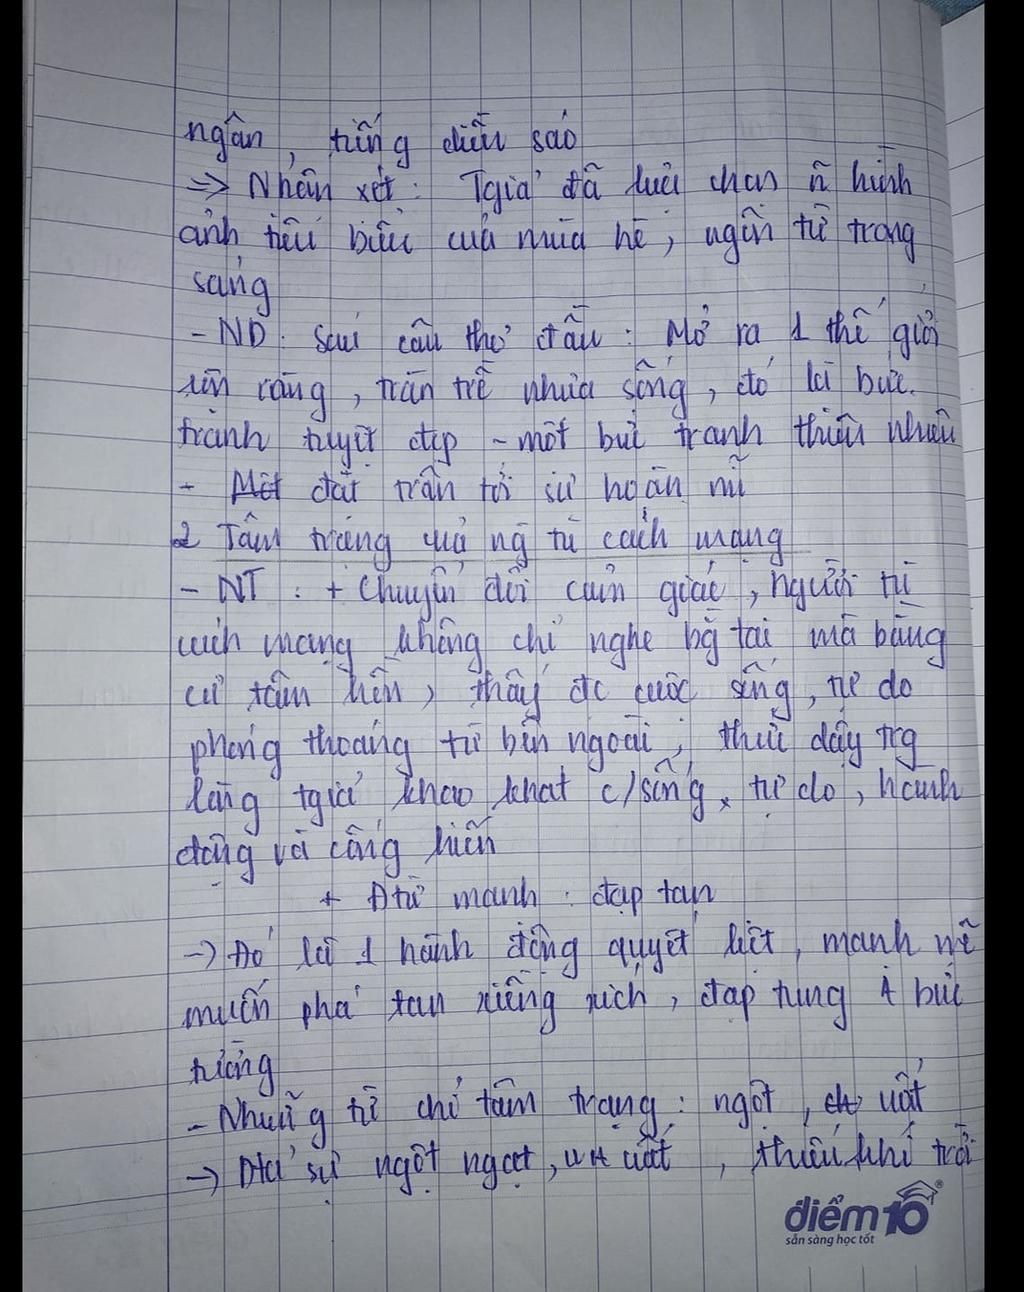 ngân, tiếng diều sáo
=> Nhận xét: Tgiả đã lựa chọn ~ hình
ảnh tiêu biểu của mùa hè, ngôn từ trong
sáng
- ND: Sáu câu thơ đầu: Mở ra 1 thế giới
rộn ràng, tràn trề nhựa sống, đó là bức
tranh tuyệt đẹp - một bức tranh thiên nhiên
- đạt trần tới sự hoàn mĩ
2 Tâm trạng của ng tù cách mạng
- NT: + Chuyển đổi cảm giác, người tù
cách mạng không chỉ nghe bg tai mà bằng
cả tâm hồn, thấy đc cuộc sống, tự do
phóng thoáng từ bên ngoài, thức dậy trg
lòng tgiả khao khát c/sống, tự do, hành
động và cống hiến
+ Đtừ mạnh: đạp tan
-> Đó là 1 hành động quyết liệt, mạnh mẽ
muốn phá tan xiềng xích, đạp tung 4 bức
tường
- Những từ chỉ tâm trạng: ngột, uất
-> sự ngột ngạt, uất, thiếu khí trời
điểm10®
sẵn sàng học tốt